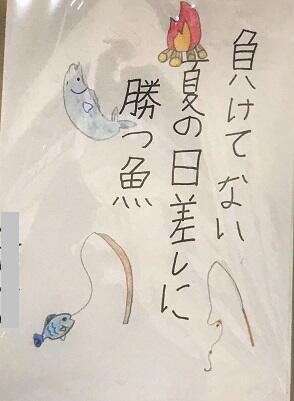 負けてない
夏の日差しに
勝つ魚